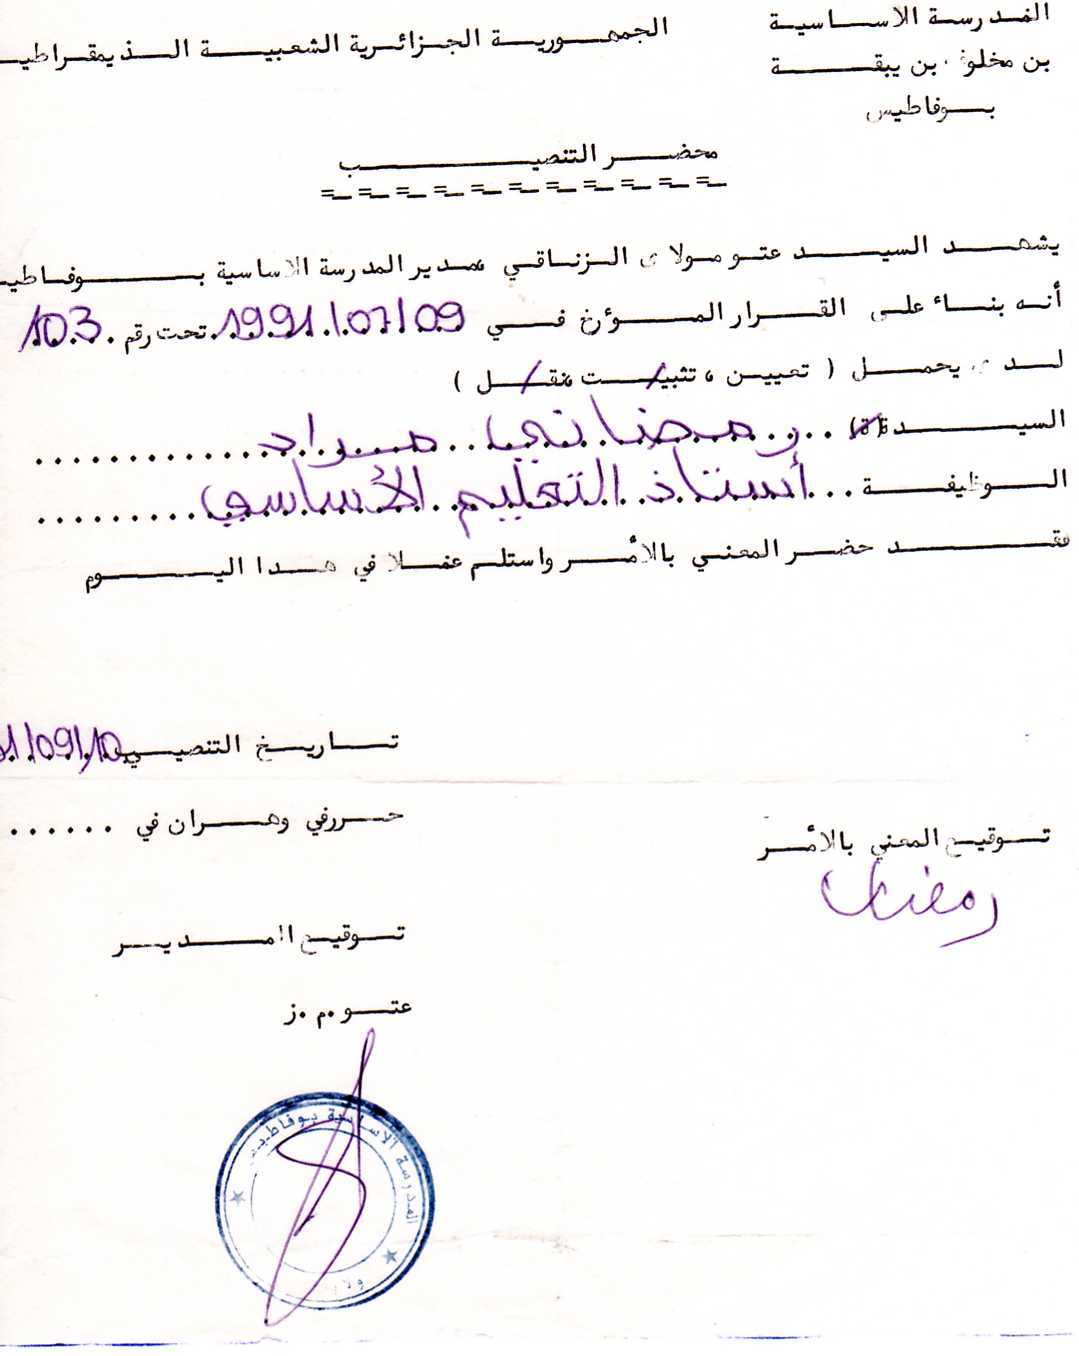 المدرسة الاساسية
الجمهورية الجزائرية الشعبية الديمقراطيـ
بن مخلوف بن يبقة
بوفاطيس
محضر التنصيب
يشهد السيد عتو مولاى الزناقي مدير المدرسة الاساسية بوفاطيـ
أنه بناء على القرار المؤرخ في 1991/07/09 تحت رقم 103
لدى يحمل ( تعيين ، تثبيت ، نقل )
السيد(ة) رمضاني مراد
الوظيفة أستاذ التعليم الأساسي
فقد حضر المعني بالأمر واستلم عملا في هدا اليوم
تاريخ التنصيب 91/09/10
حررفي وهران في ......
توقيع المعني بالأمر
رمضاني
توقيع المدير
عتو .م .ز
المدرسة الاساسية بوفاطيس